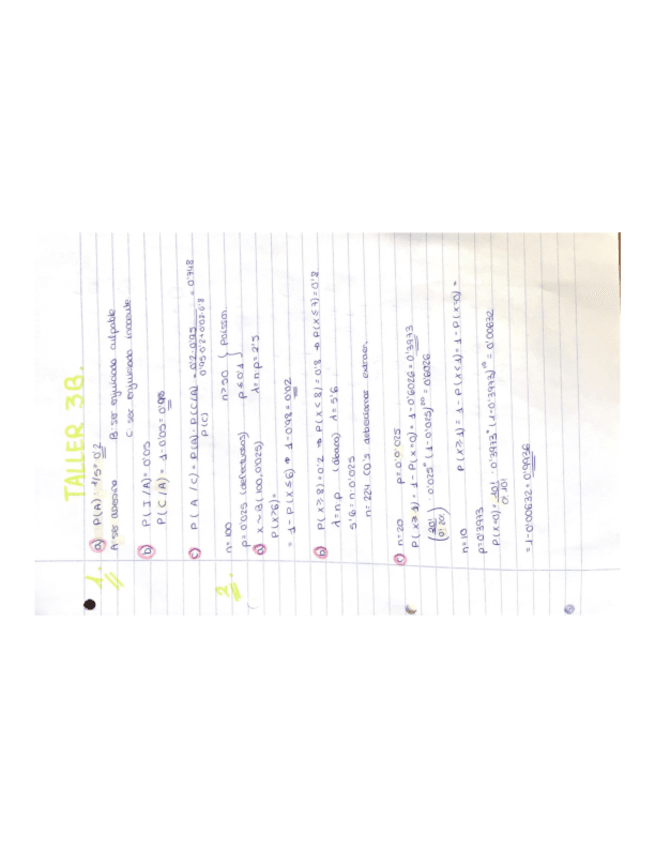 TALLER 3B.
1. a) P(A) = 1/5 = 0'2
A: ser asesina B: ser enjuiciada culpable
C: ser enjuiciada inocente
b) P(I/A) = 0'05
P(C/A) = 1-0'05 = 0'95
c) P(A/C) = P(A)·P(C/A) / P(C) = 0'2·0'95 / 0'95·0'2+0'02·0'8 = 0'748
2. n=100 n>50 } Poisson.
p=0'025 (defectuosos) p≤0'1
a) x~B(100,0'025) λ=n·p=2'5
P(x>6)=
= 1-P(x≤6) → 1-0'98=0'02
b) P(x≥8)=0'2 → P(x<8)=0'8 → P(x≤7)=0'8
λ=n·p (ábaco) λ=5'6
5'6=n·0'025
n=224 CD's deberíamos extraer.
c) n=20 p=0'025
P(x≥1)=1-P(x=0)=1-0'6026=0'3973
(20!/0!20!)·0'025⁰(1-0'025)²⁰=0'6026
n=10 P(x≥1)=1-P(x<1)=1-P(x=0)=
p=0'3973
P(x=0)=10!/0!10!·0'3973⁰(1-0'3973)¹⁰=0'00632
=1-0'00632=0'9936